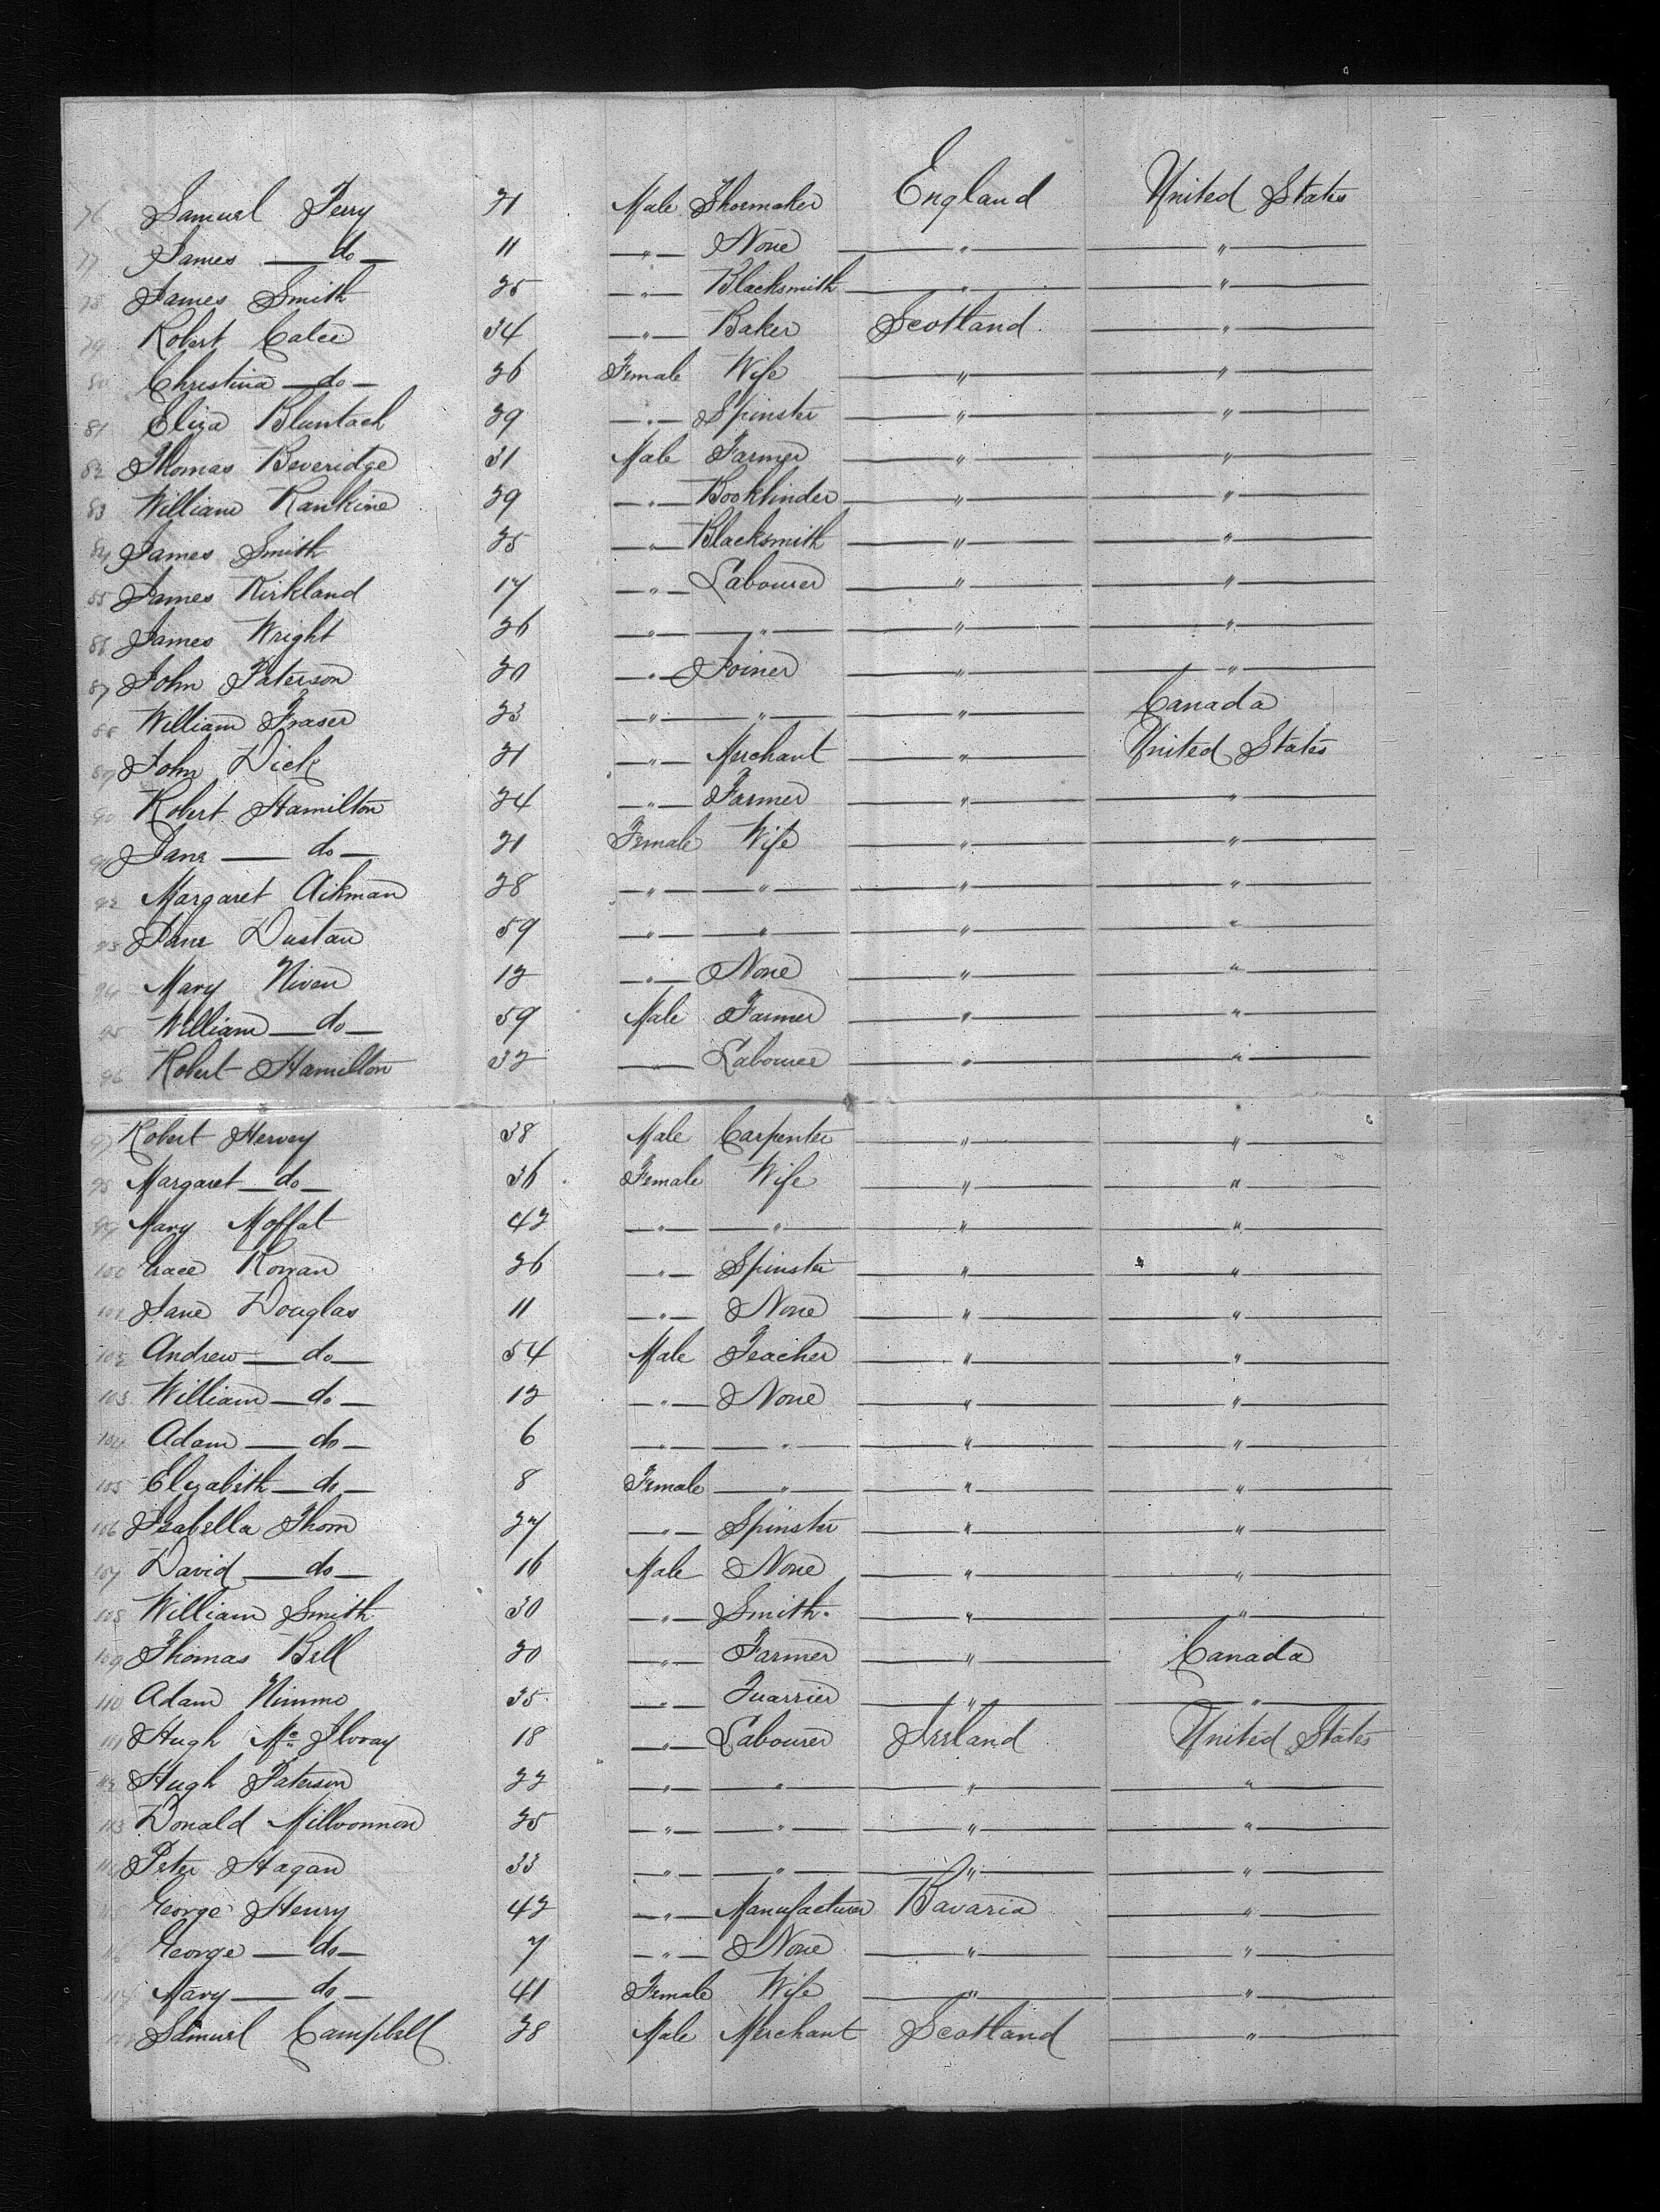 76 Samuel Perry 21 Male Shoemaker England United States
77 James — do — 11 — " — None — " — — " —
78 James Smith 25 — " — Blacksmith — " — — " —
79 Robert Calee 34 — " — Baker Scotland — " —
80 Christina — do — 26 Female Wife — " — — " —
81 Eliza Bluntach 29 — " — Spinster — " — — " —
82 Thomas Beveridge 31 Male Farmer — " — — " —
83 William Rankine 29 — " — Bookbinder — " — — " —
84 James Smith 25 — " — Blacksmith — " — — " —
85 James Kirkland 17 — " — Labourer — " — — " —
86 James Wright 26 — " — — " — — " — — " —
87 John Paterson 20 — " — Joiner — " — — " —
88 William Fraser 23 — " — — " — — " — Canada
89 John Dick 21 — " — Merchant — " — United States
90 Robert Hamilton 24 — " — Farmer — " — — " —
91 Jane — do — 21 Female Wife — " — — " —
92 Margaret Aikman 28 — " — — " — — " — — " —
93 Jane Dustan 59 — " — — " — — " — — " —
94 Mary Niven 12 — " — None — " — — " —
95 William — do — 59 Male Farmer — " — — " —
96 Robert Hamilton 32 — " — Labourer — " — — " —
97 Robert Hervey 38 Male Carpenter — " — — " —
98 Margaret — do — 36 Female Wife — " — — " —
99 Mary Moffat 42 — " — — " — — " — — " —
100 Grace Rowan 26 — " — Spinster — " — — " —
101 Jane Douglas 11 — " — None — " — — " —
102 Andrew — do — 54 Male Teacher — " — — " —
103 William — do — 12 — " — None — " — — " —
104 Adam — do — 6 — " — — " — — " — — " —
105 Elizabeth — do — 8 Female — " — — " — — " —
106 Isabella Thom 27 — " — Spinster — " — — " —
107 David — do — 16 Male None — " — — " —
108 William Smith 30 — " — Smith. — " — — " —
109 Thomas Bell 20 — " — Farmer — " — Canada
110 Adam Nimmo 35 — " — Quarrier — " — — " —
111 Hugh Mc Ilvray 18 — " — Labourer Ireland United States
112 Hugh Paterson 22 — " — — " — — " — — " —
113 Donald 25 — " — — " — — " — — " —
114 Peter Hagan 33 — " — — " — — " — — " —
115 George Henry 42 — " — Manufacturer Bavaria — " —
116 George — do — 7 — " — None — " — — " —
117 Mary — do — 41 Female Wife — " — — " —
118 Samuel Campbell 28 Male Merchant Scotland — " —